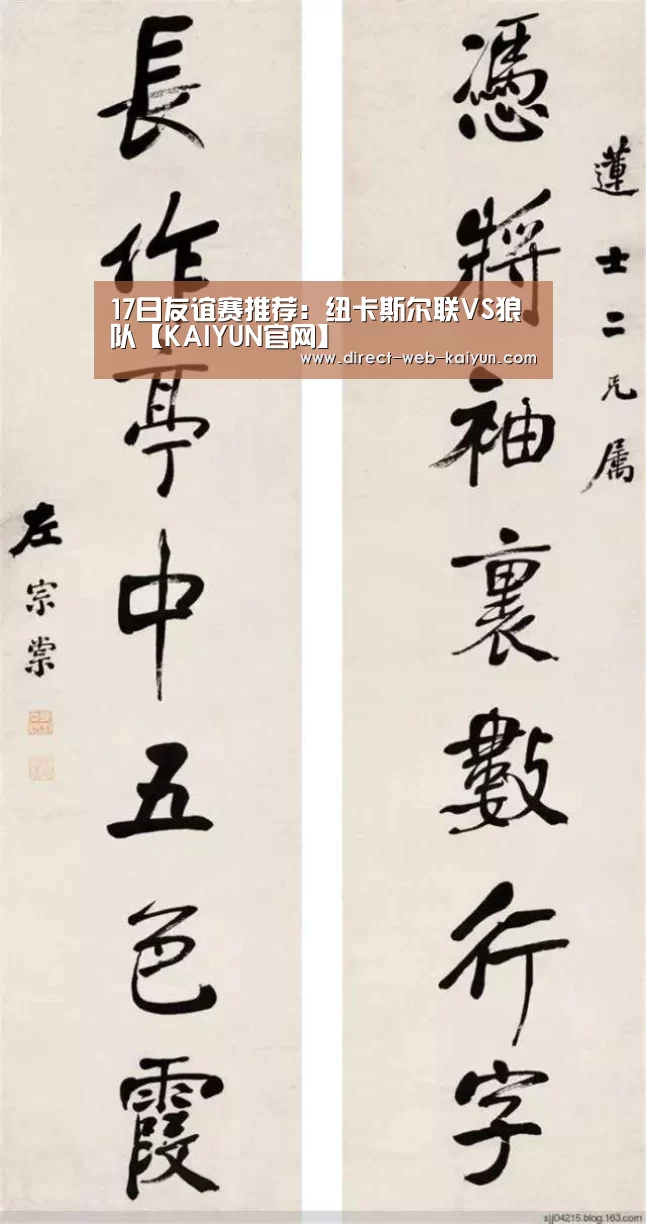 憑將袖裏數行字
蓮士二兄属
長作亭中五色霞
左宗棠
17日友谊赛推荐：纽卡斯尔联VS狼
队【KAIYUN官网】
www.direct-web-kaiyun.com
sjj04215.blog.163.com